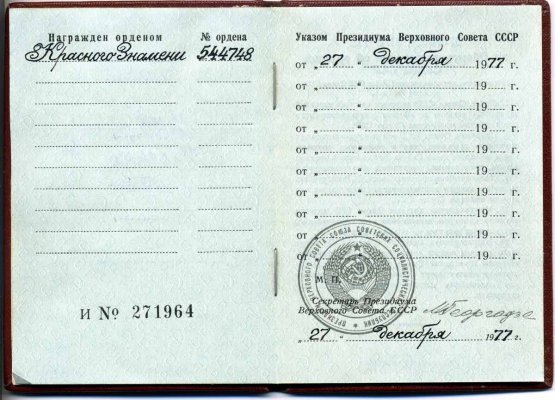 Награжден орденом № ордена
Красного Знамени 544748
И № 271964
Указом Президиума Верховного Совета СССР
от „27“ декабря 1977 г.
от „ “ 19 г.
от „ “ 19 г.
от „ “ 19 г.
от „ “ 19 г.
от „ “ 19 г.
от „ “ 19 г.
от „ “ 19 г.
от „ “ 19 г.
от „ “ 19 г.
ПРЕЗИДИУМ ВЕРХОВНОГО СОВЕТА СОЮЗА СОВЕТСКИХ СОЦИАЛИСТИЧЕСКИХ РЕСПУБЛИК
М. П.
Секретарь Президиума
Верховного Совета СССР М Георгадзе
„27“ декабря 1977 г.